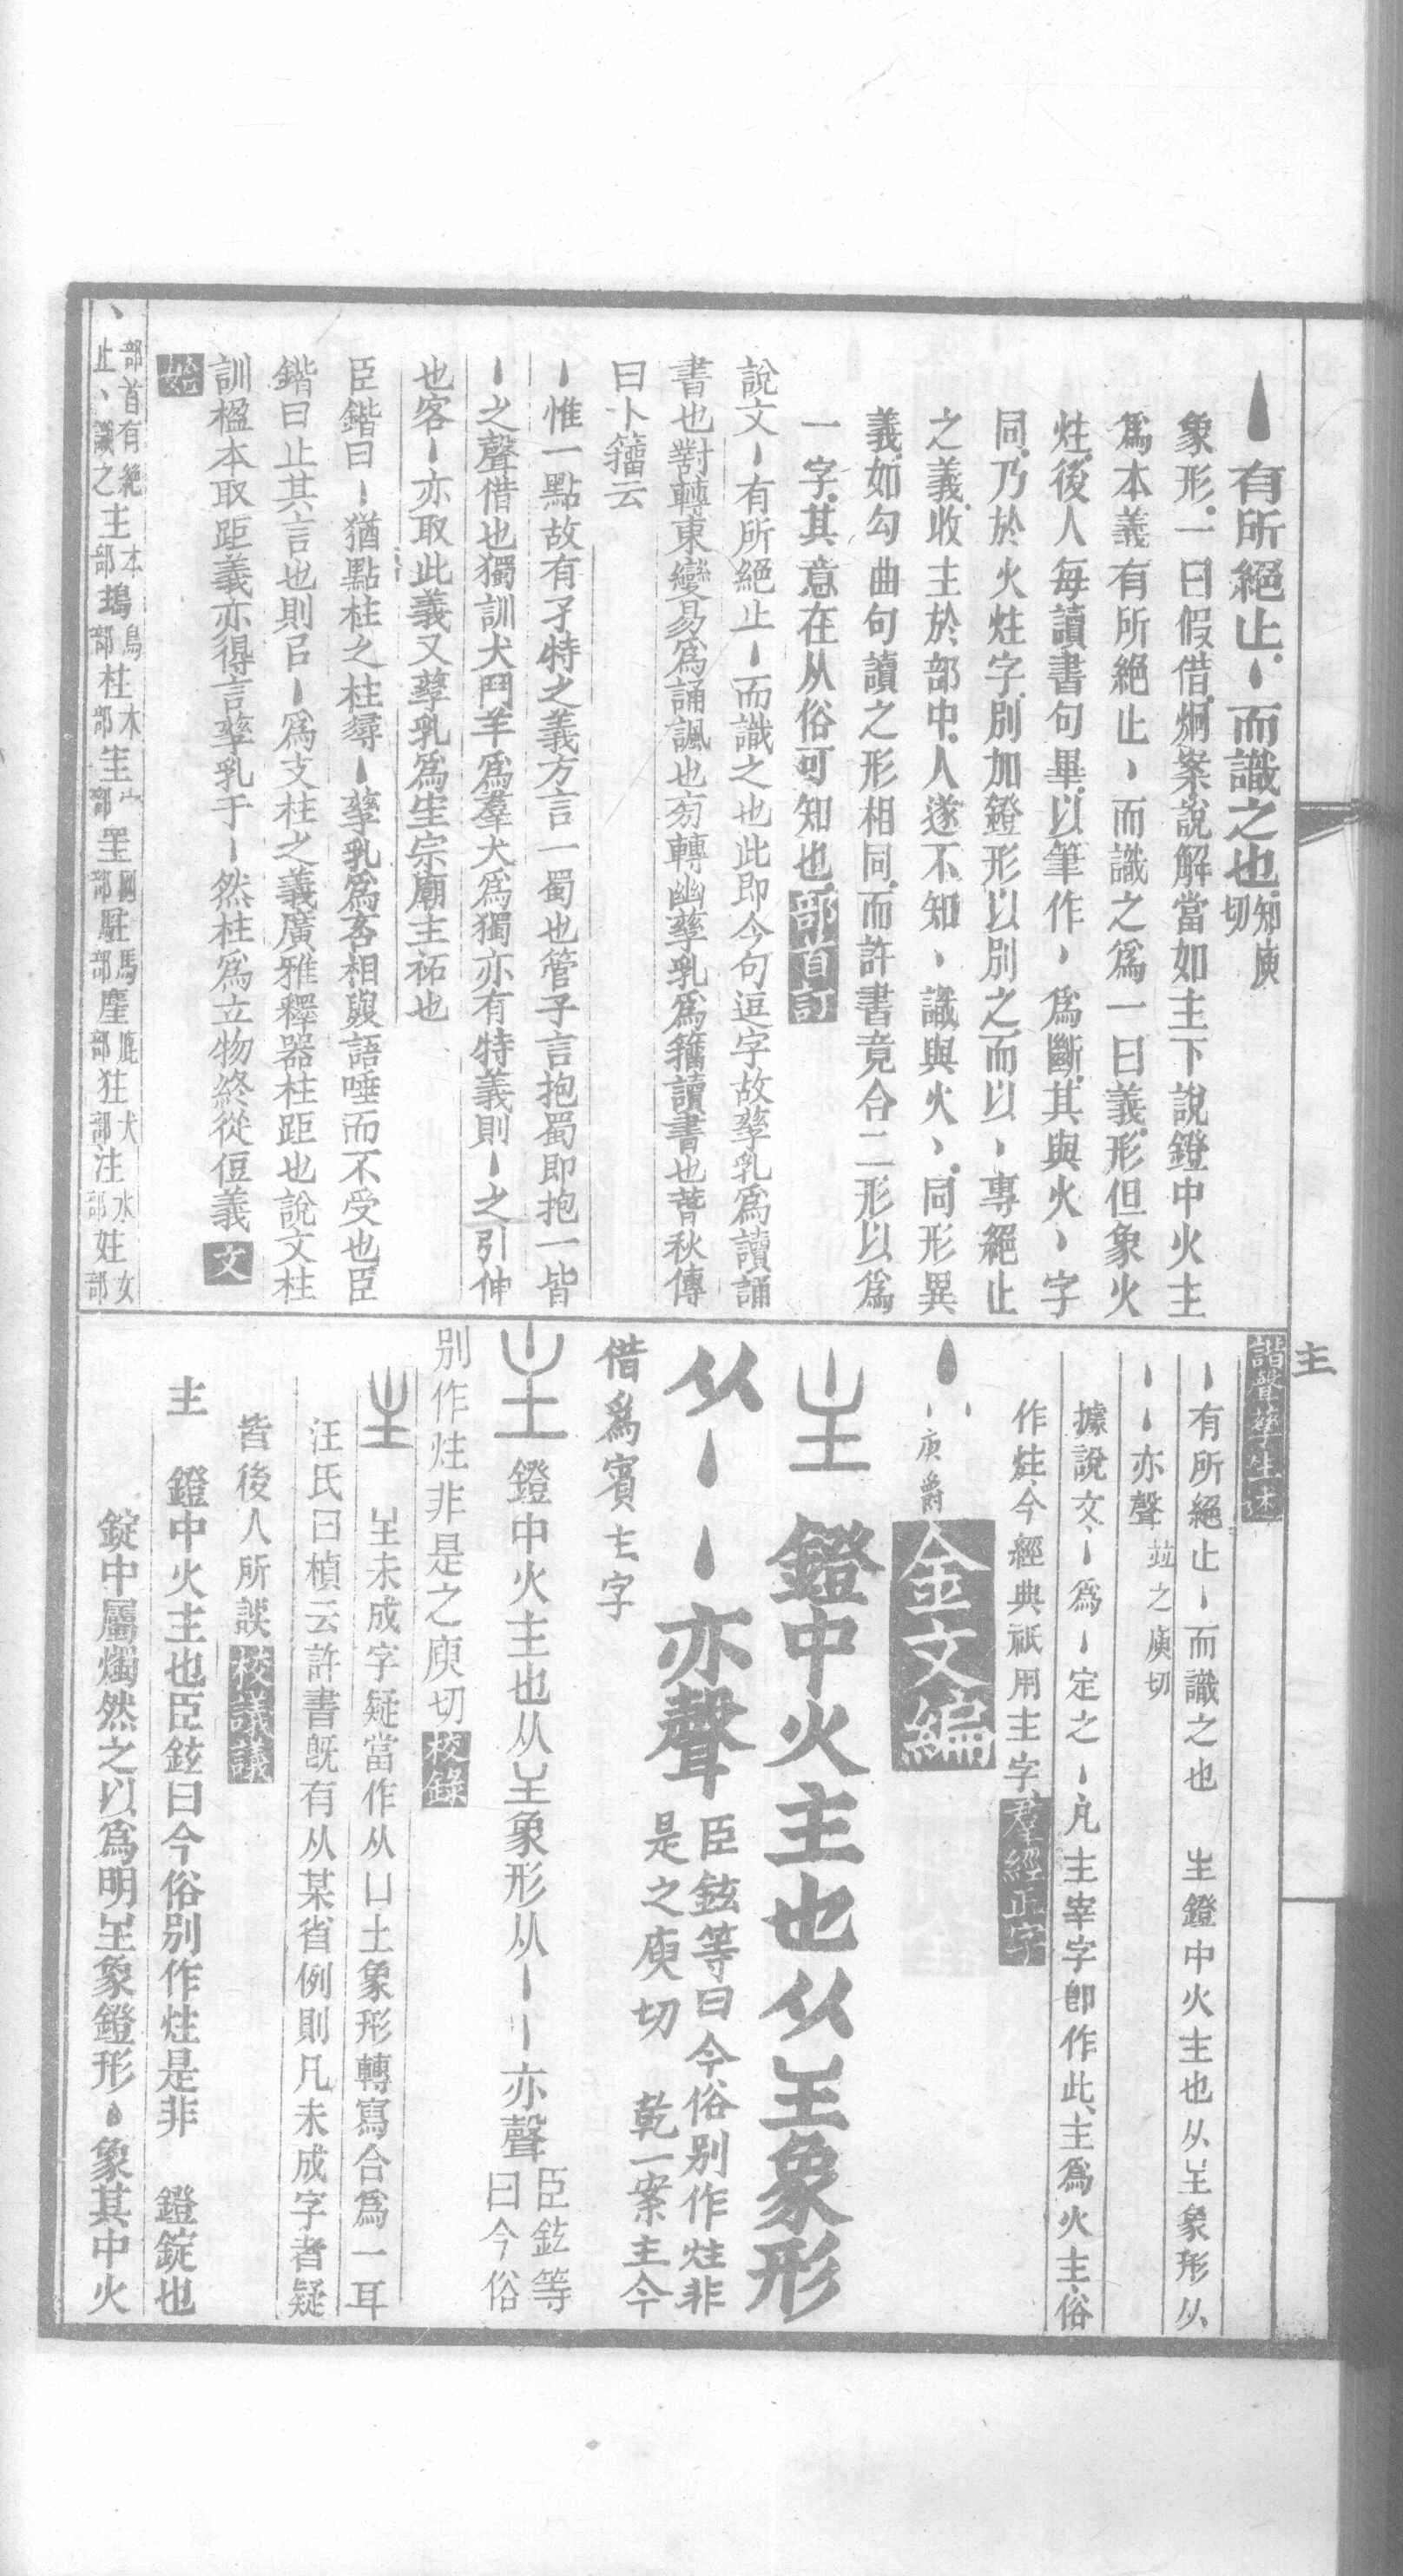 丶有所絕止丶而識之也知庾切
象形一曰假借炯案說解當如主下說鐙中火主
爲本義有所絕止丶而識之爲一曰義形但象火
炷後人每讀書句畢以筆作丶爲斷其與火丶字
同乃於火炷字別加鐙形以別之而以丶專絕止
之義收主於部中人遂不知丶識與火丶同形異
義如勾曲句讀之形相同而許書竟合二形以爲
一字其意在从俗可知也部首訂
說文丶有所絕止丶而識之也此即今句逗字故孳乳爲讀誦
書也對轉東變易爲誦諷也旁轉幽孳乳爲籒讀書也萅秋傳
曰卜籒云
丶惟一點故有孑特之義方言一蜀也管子言抱蜀即抱一皆
丶之聲借也獨訓犬鬥羊爲羣犬爲獨亦有特義則丶之引伸
也客丶亦取此義又孳乳爲主宗廟主祏也
臣鍇曰丶猶點柱之柱尋丶孳乳爲咅相與語唾而不受也臣
鍇曰止其言也則㠯丶爲支柱之義廣雅釋器柱距也說文柱
訓楹本取距義亦得言孳乳于丶然柱爲立物終從侸義文
始
丶部首有絕止丶識之主本部鴸鳥部柱木部宔宀部罜网部駐馬部麈鹿部狂犬部注水部妵女部
主
諧聲孳生述
丶有所絕止丶而識之也　主鐙中火主也从𡈼象形从
丶丶亦聲竝之庾切
據說文丶爲丶定之丶凡主宰字卽作此主爲火主俗
作炷今經典祇用主字羣經正字
丶丶庚爵金文編
主鐙中火主也从𡈼象形
从丶丶亦聲臣鉉等曰今俗別作炷非是之庾切　乾一案主今
借爲賓主字
主鐙中火主也从𡈼象形从丶丶亦聲臣鉉等曰今俗
別作炷非是之庾切校錄
主　𡈼未成字疑當作从凵土象形轉寫合爲一耳
汪氏曰楨云許書旣有从某省例則凡未成字者疑
皆後人所誤校議議
主　鐙中火主也臣鉉曰今俗別作炷是非　鐙錠也
錠中屬燭然之以爲明𡈼象鐙形丶象其中火